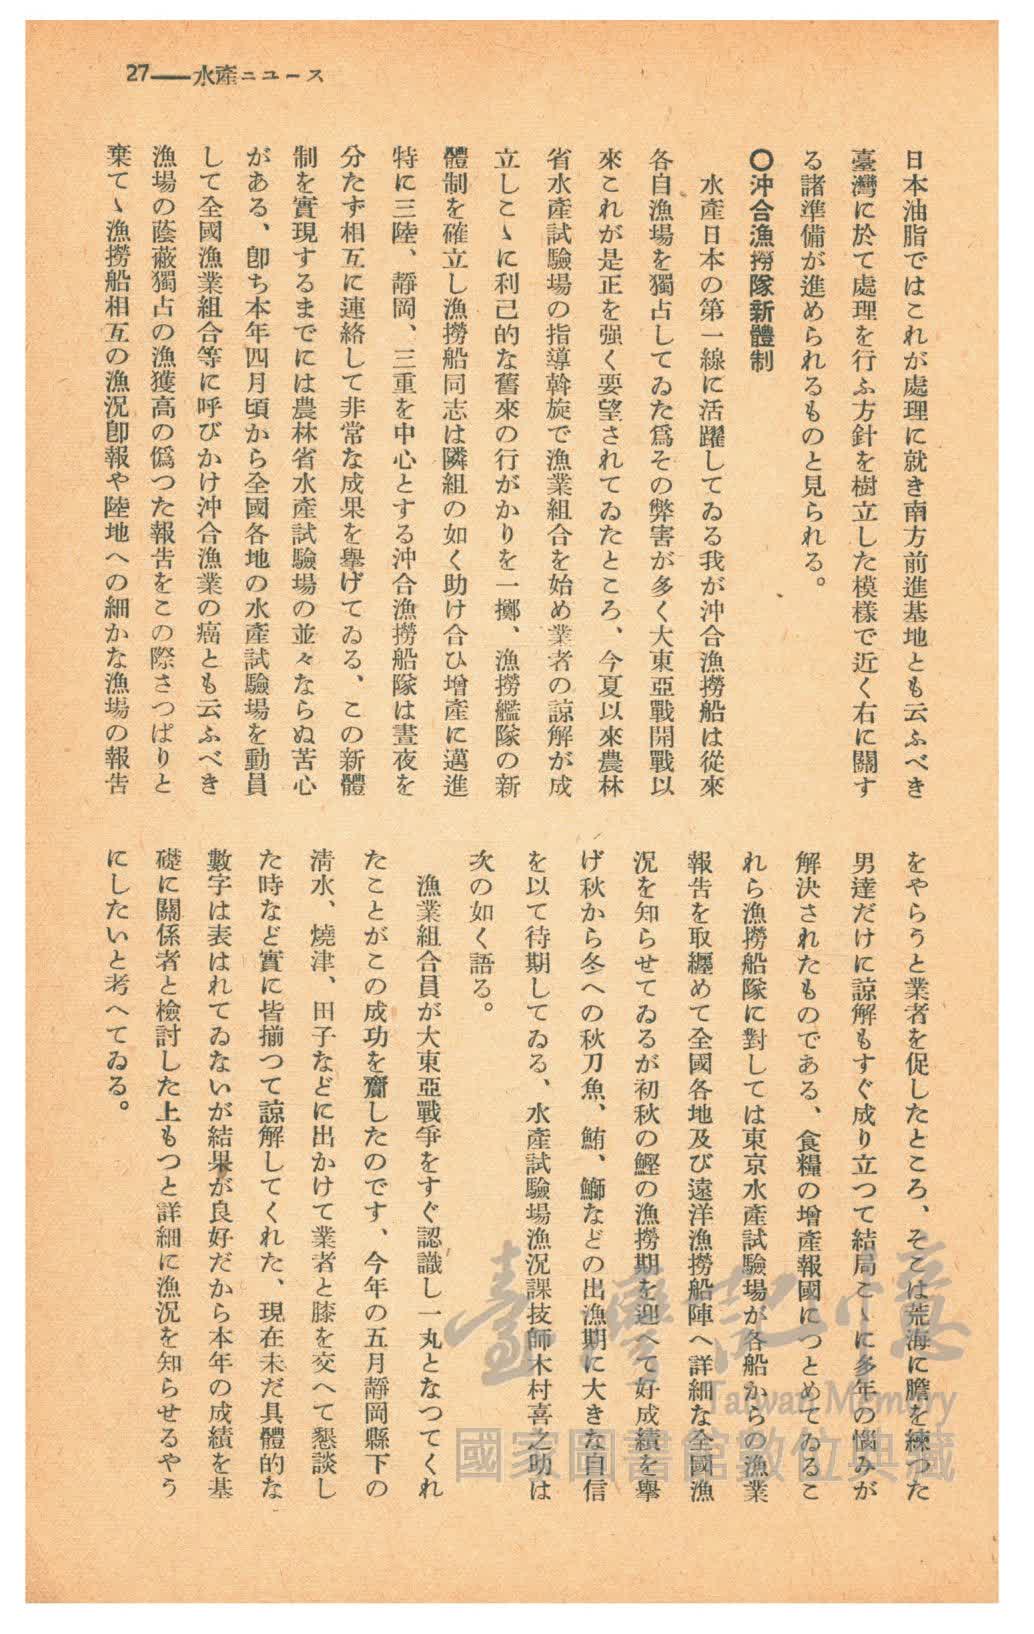 27――水產ニュース
日本油脂ではこれが處理に就き南方前進基地とも云ふべき
臺灣に於て處理を行ふ方針を樹立した模樣で近く右に關す
る諸準備が進められるものと見られる。
〇沖合漁撈隊新體制
水產日本の第一線に活躍してゐる我が沖合漁撈船は從來
各自漁場を獨占してゐた爲その弊害が多く大東亞戰開戰以
來これが是正を强く要望されてゐたところ、今夏以來農林
省水產試驗場の指導斡旋で漁業組合を始め業者の諒解が成
立しこゝに利己的な舊來の行がかりを一擲、漁撈艦隊の新
體制を確立し漁撈船同志は隣組の如く助け合ひ增產に邁進
特に三陸、靜岡、三重を中心とする沖合漁撈船隊は晝夜を
分たず相互に連絡して非常な成果を擧げてゐる、この新體
制を實現するまでには農林省水產試驗場の並々ならぬ苦心
がある、卽ち本年四月頃から全國各地の水產試驗場を動員
して全國漁業組合等に呼びかけ沖合漁業の癌とも云ふべき
漁場の蔭蔽獨占の漁獲高の僞つた報告をこの際さつぱりと
棄てゝ漁撈船相互の漁況卽報や陸地への細かな漁場の報告
をやらうと業者を促したところ、そこは荒海に膽を練つた
男達だけに諒解もすぐ成り立つて結局こゝに多年の惱みが
解決されたものである、食糧の增產報國につとめてゐるこ
れら漁撈船隊に對しては東京水產試驗場が各船からの漁業
報告を取纒めて全國各地及び遠洋漁撈船陣へ詳細な全國漁
況を知らせてゐるが初秋の鰹の漁撈期を迎へて好成績を擧
げ秋から冬への秋刀魚、鮪、鰤などの出漁期に大きな自信
を以て待期してゐる、水產試驗場漁況課技師木村喜之助は
次の如く語る。
漁業組合員が大東亞戰爭をすぐ認識し一丸となつてくれ
たことがこの成功を齎したのです、今年の五月靜岡縣下の
淸水、燒津、田子などに出かけて業者と膝を交へて懇談し
た時など實に皆揃つて諒解してくれた、現在未だ具體的な
數字は表はれてゐないが結果が良好だから本年の成績を基
礎に關係者と檢討した上もつと詳細に漁況を知らせるやう
にしたいと考へてゐる。
臺灣記憶
Taiwan Memory
國家圖書館數位典藏